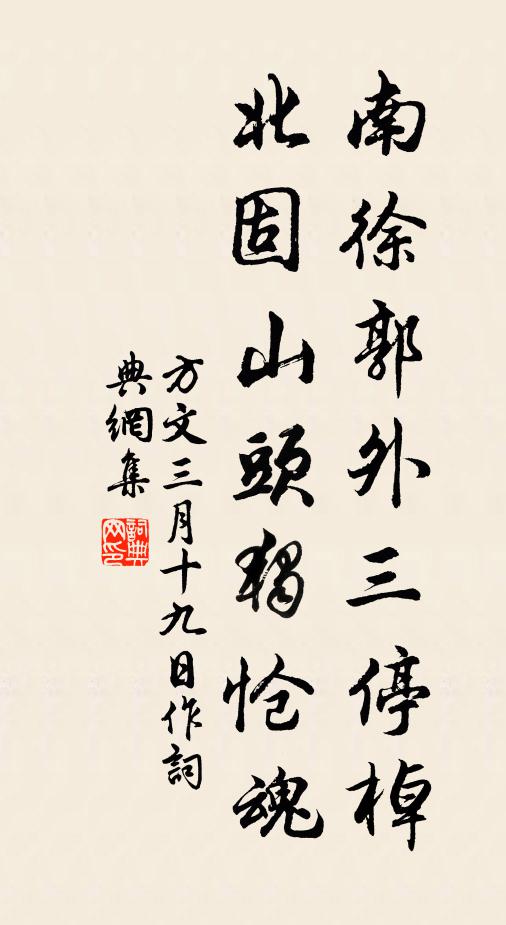 南徐郭外三停棹
北固山頭獨愴魂
方文三月十九日作詞
典網集
詞典网印